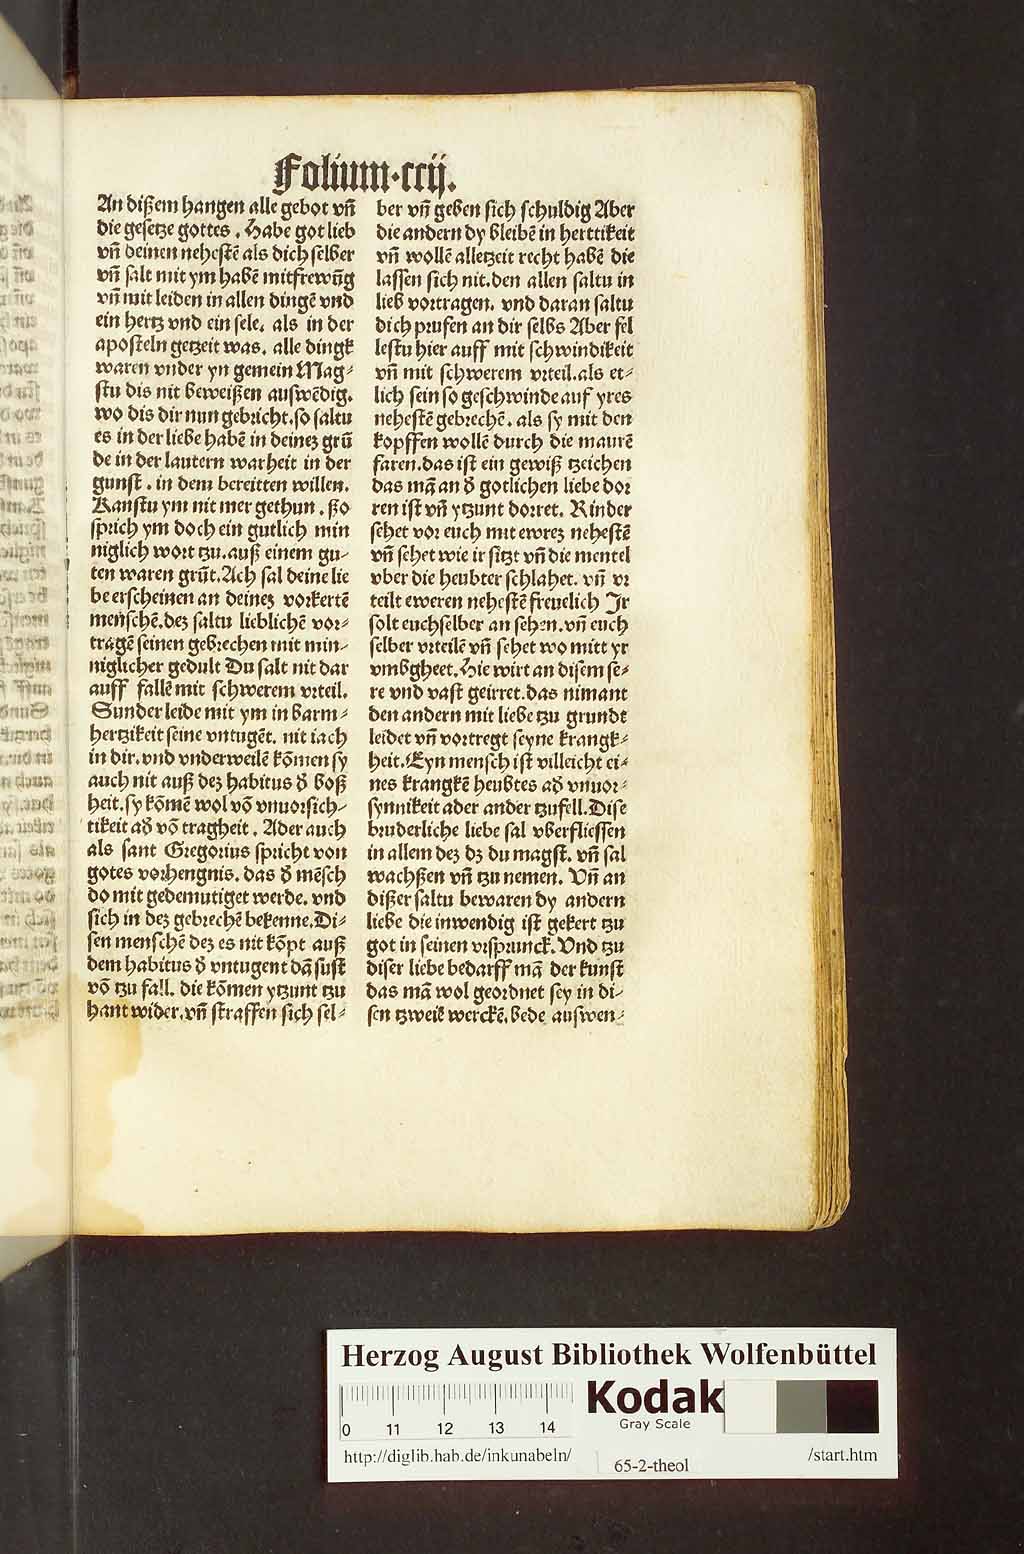 Folium·ccij.
An dißem hangen alle gebot vñ
die gesetze gottes . Habe got lieb
vñ deinen nehestē als dich selber
vñ salt mit ym habē mitfrewūg
vñ mit leiden in allen dingē vnd
ein hertz vnd ein sele. als in der
aposteln getzeit was. alle dingk
waren vnder yn gemein Mag⸗
stu dis nit beweißen auswēdig.
wo dis dir nun gebricht.so saltu
es in der liebe habē in deinez grū
de in der lautern warheit in der
gunst . in dem bereitten willen.
Kanstu ym nit mer gethun . ßo
sprich ym doch ein gutlich min
niglich wort tzu.auß einem gu⸗
ten waren grūt.Ach sal deine lie
be erscheinen an deinez vorkertē
menschē.dez saltu lieblichē vor⸗
tragē seinen gebrechen mit min⸗
niglicher gedult Du salt nit dar
auff fallē mit schwerem vrteil.
Sunder leide mit ym in barm⸗
hertzikeit seine vntugēt. nit iach
in dir. vnd vnderweilē kōmen sy
auch nit auß dez habitus đ boß
heit.sy kōmē wol vō vnuorsich⸗
tikeit ađ vō tragheit . Ader auch
als sant Gregorius spricht von
gotes vorhengnis. das đ mēsch
do mit gedemutiget werde. vnd
sich in dez gebrechē bekenne.Di⸗
sen menschē dez es nit kōpt auß
dem habitus đ vntugent dā sust
vō tzu fall. die kōmen ytzunt tzu
hant wider.vñ straffen sich sel⸗
ber vñ geben sich schuldig Aber
die andern dy bleibē in herttikeit
vñ wollē alletzeit recht habē die
lassen sich nit.den allen saltu in
lieb vortragen. vnd daran saltu
dich prufen an dir selbs Aber fel
lestu hier auff mit schwindikeit
vñ mit schwerem vrteil.als et⸗
lich sein so geschwinde auf yres
nehestē gebrechē . als sy mit den
kopffen wollē durch die maurē
faren.das ist ein gewiß tzeichen
das mā an đ gotlichen liebe dor
ren ist vñ ytzunt dorret. Kinder
sehet vor euch mit ewrez nehestē
vñ sehet wie ir sitzt vñ die mentel
vber die heubter schlahet. vñ vr
teilt eweren nehestē freuelich Jr
solt euch selber an sehen.vñ euch
selber vrteilē vñ sehet wo mitt yr
vmbgheet.Hie wirt an disem se⸗
re vnd vast geirret.das nimant
den andern mit liebe tzu grunde
leidet vñ vortregt seyne krangk⸗
heit.Eyn mensch ist villeicht ei⸗
nes krangkē heubtes ađ vnuor⸗
synnikeit ader ander tzufell.Dise
bruderliche liebe sal vberfliessen
in allem dez dz du magst. vñ sal
wachßen vñ tzu nemen. Vñ an
dißer saltu bewaren dy andern
liebe die inwendig ist gekert tzu
got in seinen vrsprunck.Vnd tzu
diser liebe bedarff mā der kunst
das mā wol geordnet sey in di⸗
sen tzweiē werckē.bede auswen⸗
Herzog August Bibliothek Wolfenbüttel
0 11 12 13 14
Kodak
Gray Scale
http://diglib.hab.de/inkunabeln/
65-2-theol
/start.htm